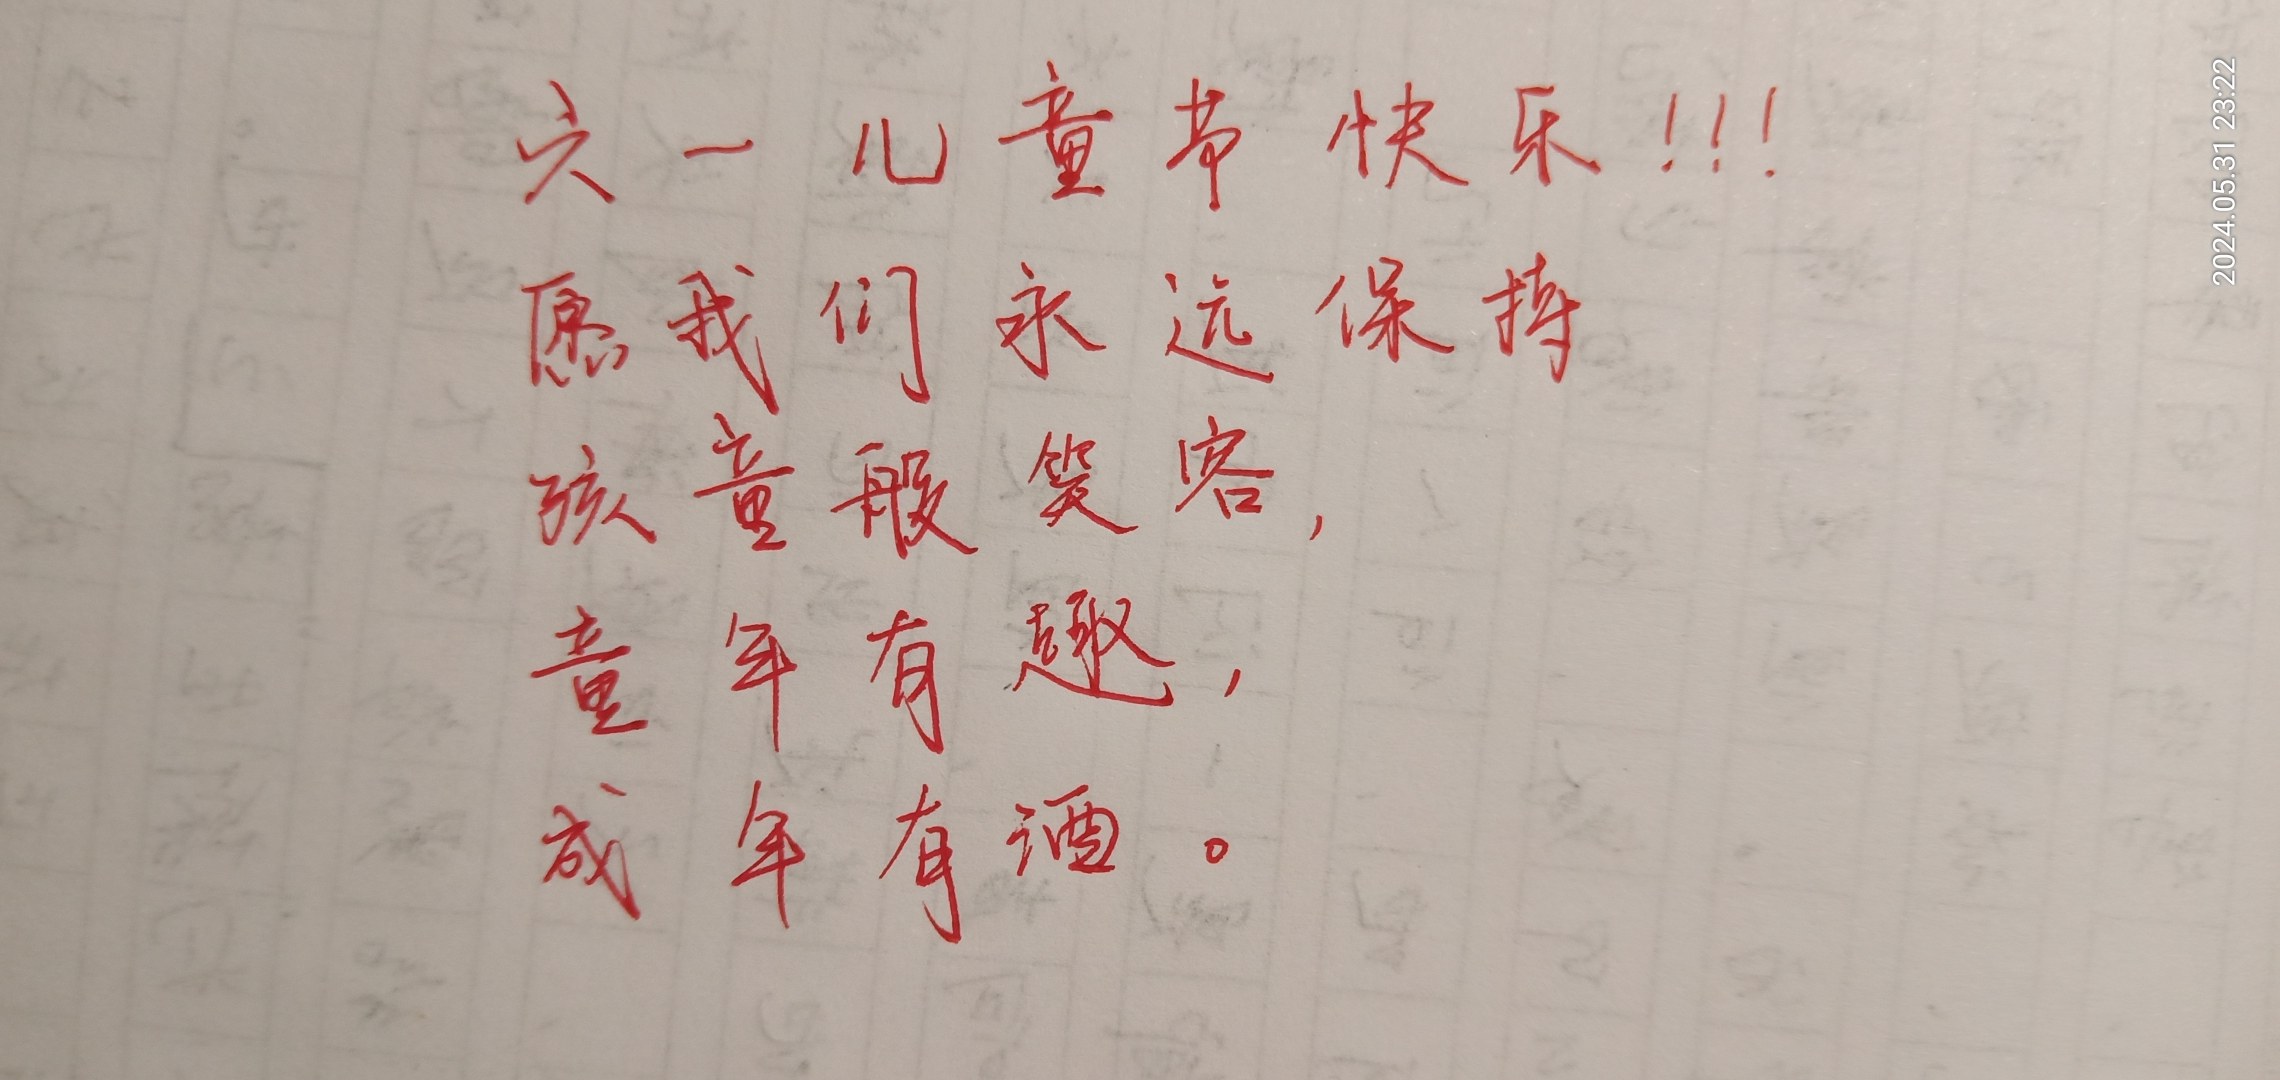 六一儿童节快乐!!!
愿我们永远保持
孩童般笑容,
童年有趣,
成年有酒。
2024.05.31 23:22